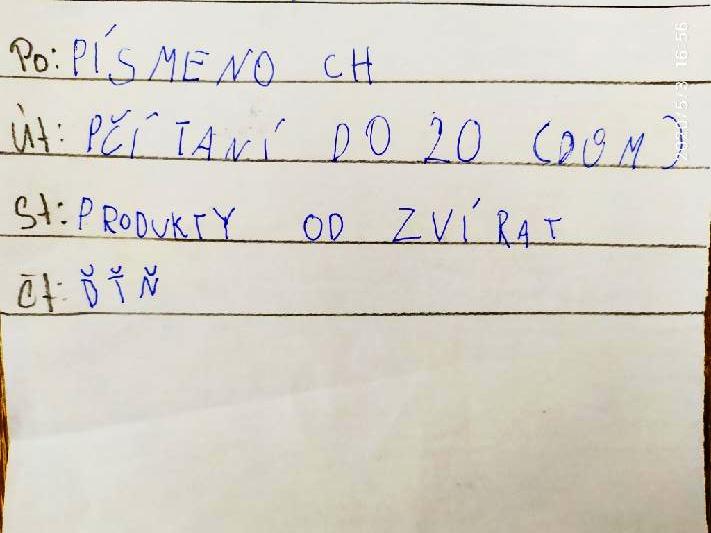 Po: PÍSMENO CH
Út: PČÍTANÍ DO 20 (DOM)
St: PRODUKTY OD ZVÍRAT
Čt: Ď Ť Ň
2020/5/3 16:56